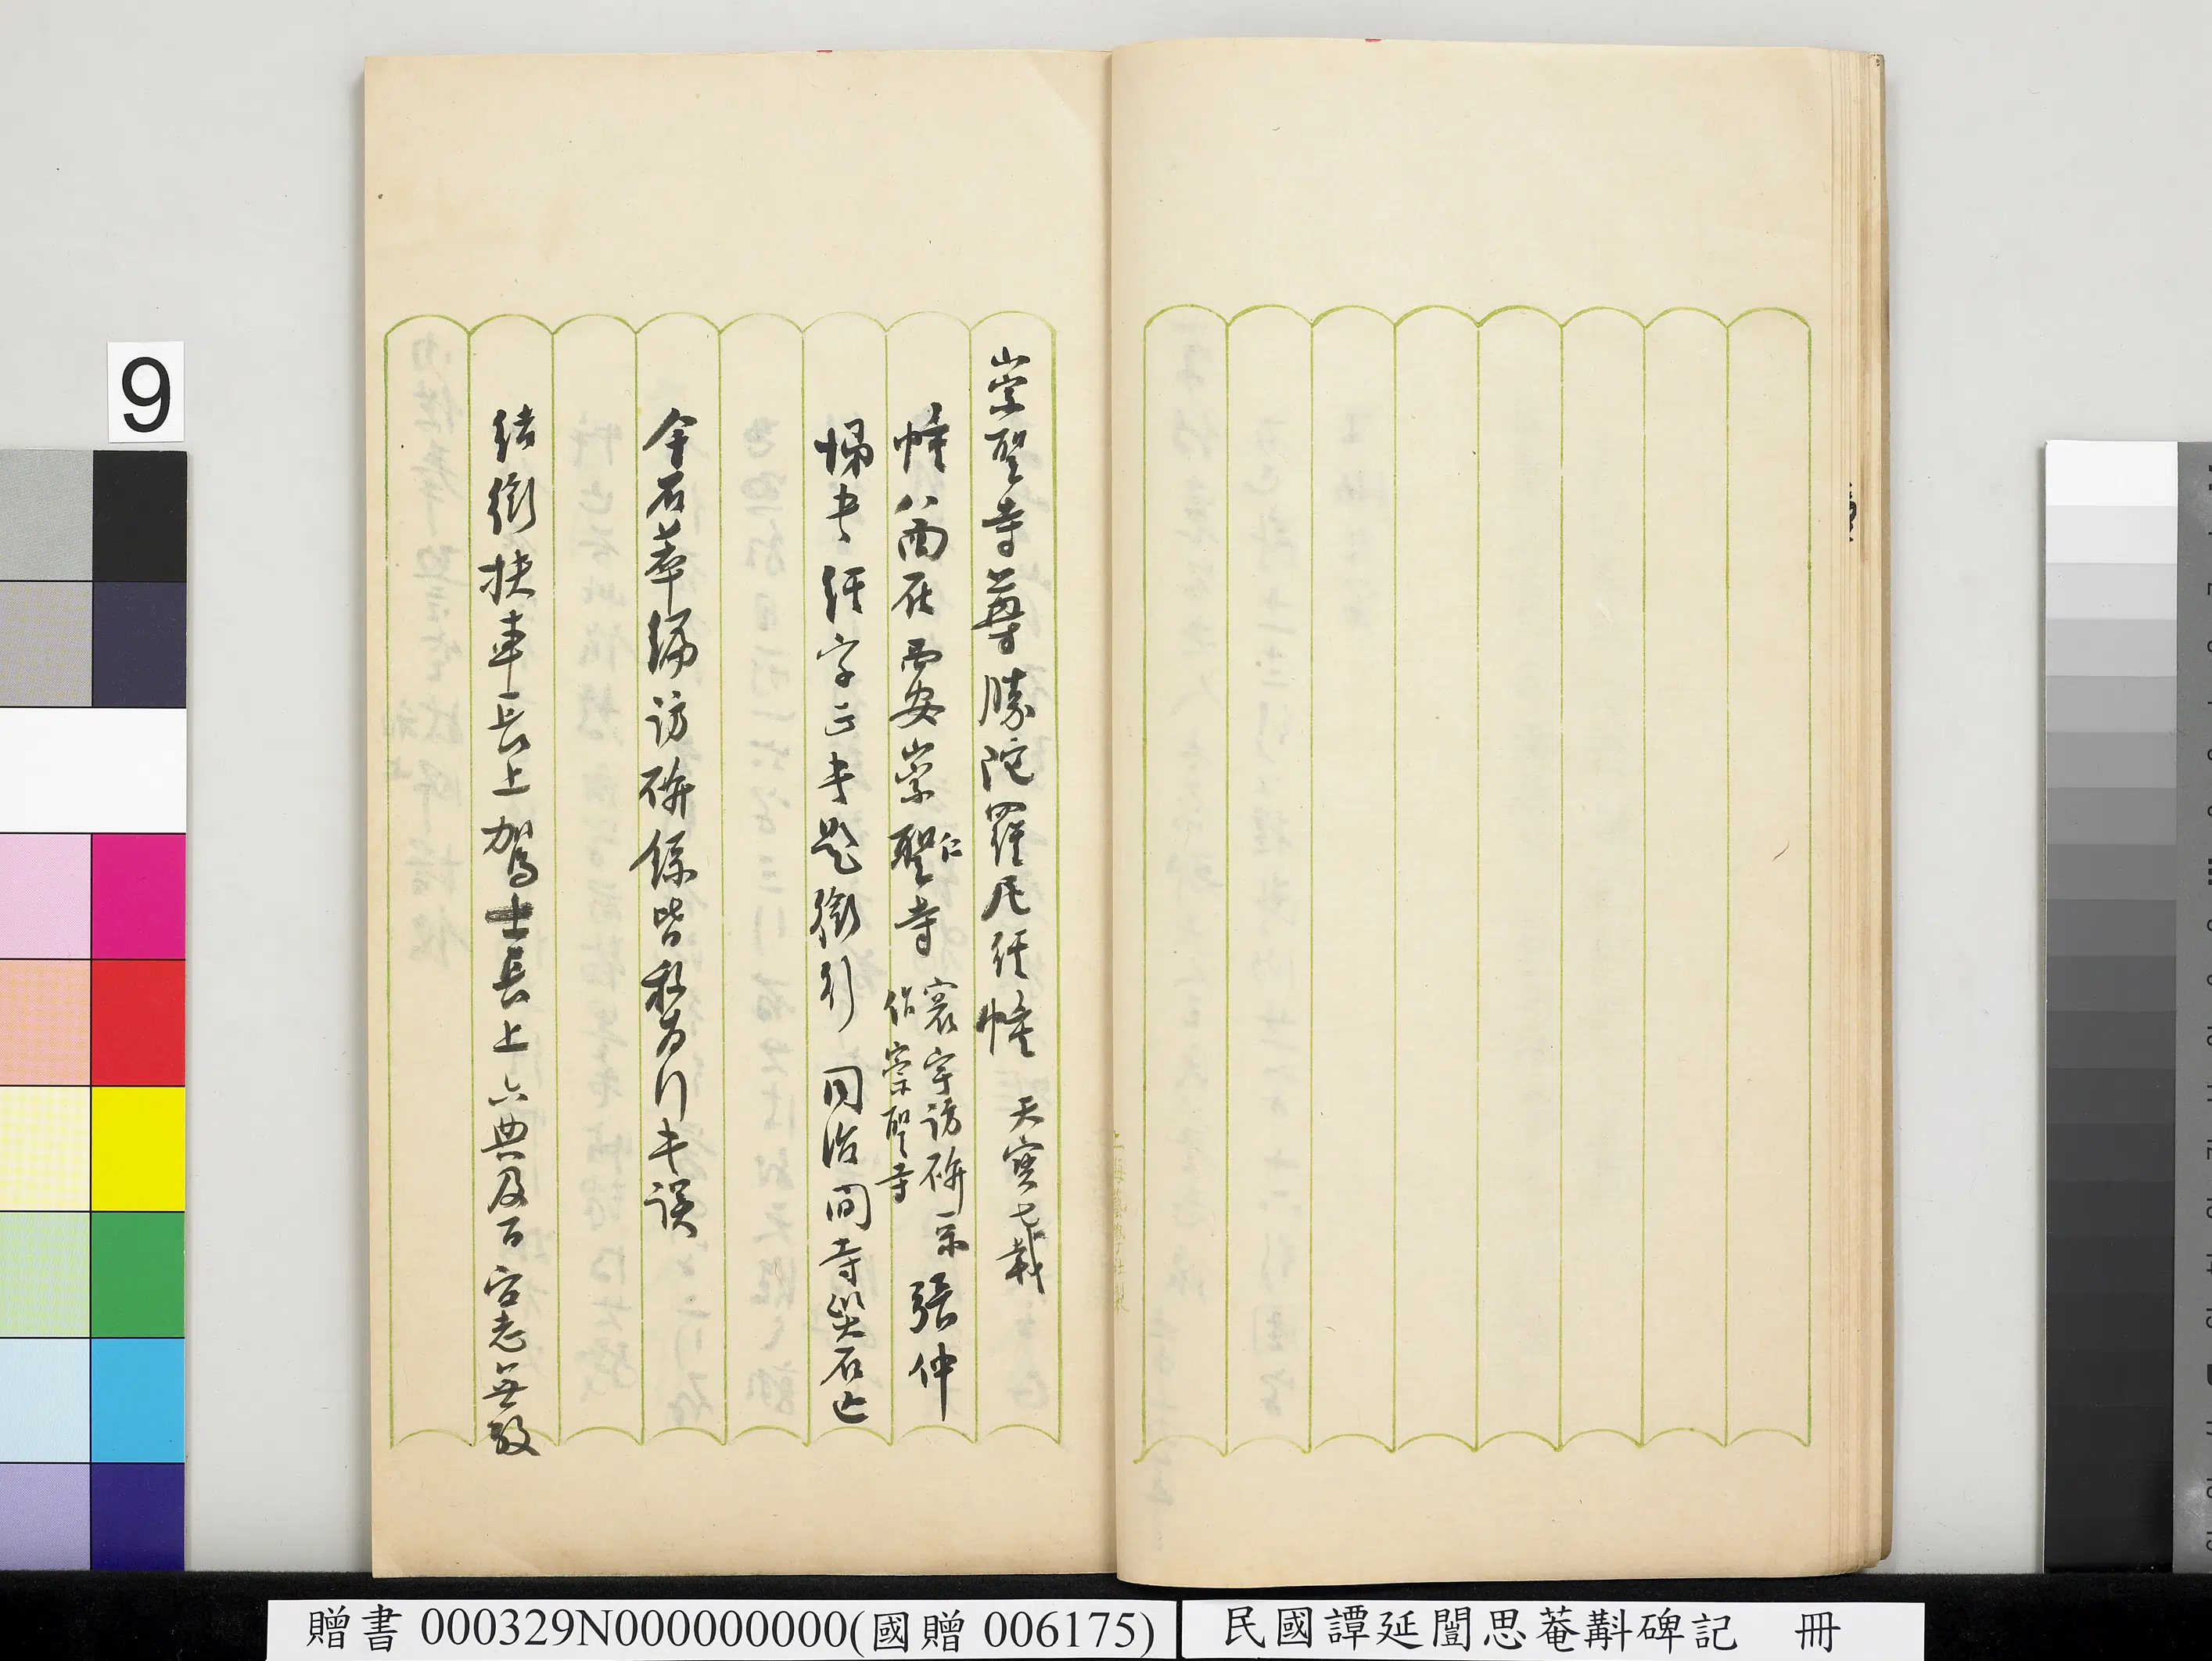 崇聖寺尊勝陀羅尼經幢　天寶七載
幢八面在西安崇聖仁寺寰宇訪碑录作崇聖寺張仲
書經字正書題銜行同治間寺燬石亡
金石萃編訪碑錄皆以為行書誤
結銜扶車長上駕士長上六典及百官志無攷
9
贈書 000329N000000000(國贈 006175)
民國譚延闓思菴斠碑記　冊